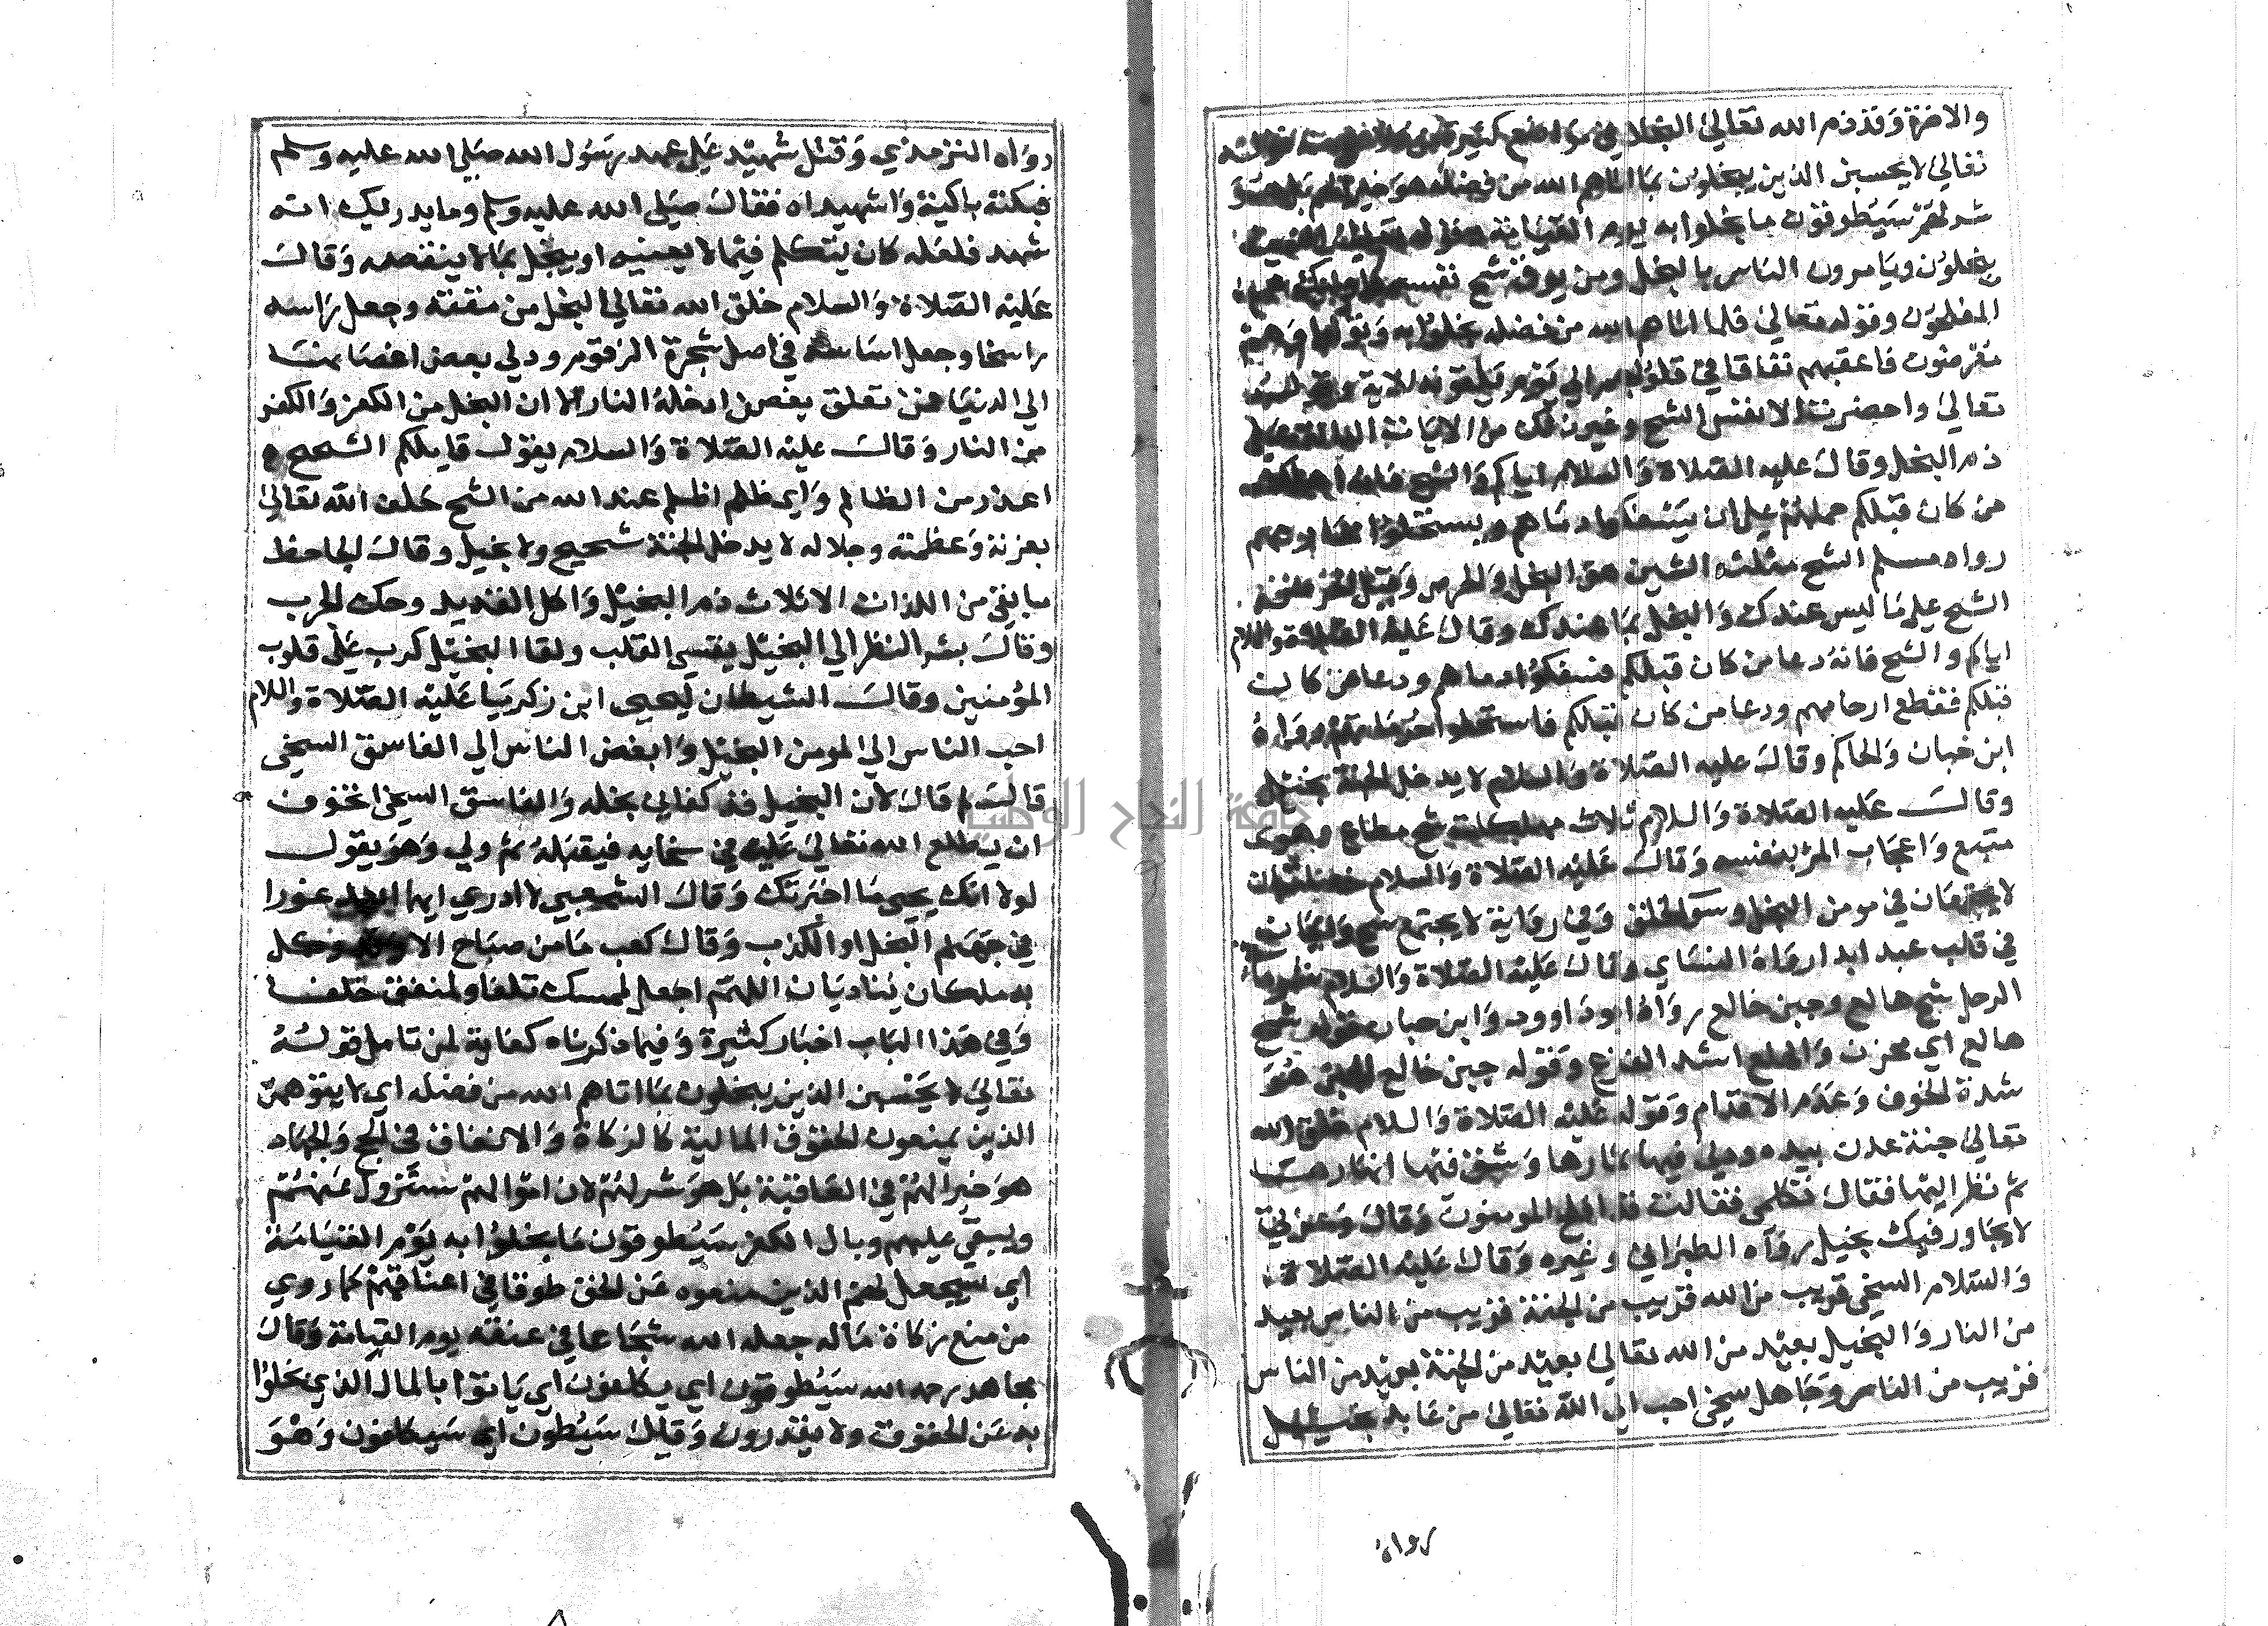 والاخرة وقد ذم الله تعالى البخل في مواضع كثيرة
تعالى لا يحسبن الذين يبخلون بما اتاهم الله من فضله هو خير لهم بل هو
شر لهم سيطوقون ما بخلوا به يوم القيامة
يبخلون ويامرون الناس بالبخل ومن يوق شح نفسه
المفلحون وقوله تعالى فلما اتاهم الله من فضله بخلوا به وتولوا وهم
معرضون فاعقبهم نفاقا في قلوبهم الى يوم يلقونه الاية
تعالى واحضرت الانفس الشح وغير ذلك من الايات
ذم البخل وقال عليه الصلاة والسلام اياكم والشح فانه اهلك
من كان قبلكم حملهم على ان يسفكوا دماهم ويستحلوا محارمهم
رواه مسلم الشح مثلث الشين هو البخل والحرص وقيل
الشح على ما ليس عندك والبخل بما عندك وقال عليه الصلاة والسلام
اياكم والشح فانه دعا من كان قبلكم فسفكوا دماهم ودعا من كان
قبلكم فقطع ارحامهم ودعا من كان قبلكم فاستحلوا حرماتهم رواه
ابن حبان والحاكم وقال عليه الصلاة والسلام لا يدخل الجنة بخيل
وقال عليه الصلاة والسلام ثلاث مهلكات شح مطاع وهوى
متبع واعجاب المرء بنفسه وقال عليه الصلاة والسلام خصلتان
لا يجتمعان في مومن البخل وسو الخلق وفي رواية لا يجتمع شح وايمان
في قلب عبد ابدا رواه النساي وقال عليه الصلاة والسلام شر ما
الرجل شح هالع وجبن خالع رواه ابو داوود وابن حبان قوله شح
هالع اي محزن والهلع اشد الفزع وقوله جبن خالع هو
شدة الخوف وعدم الاقدام وقوله عليه الصلاة والسلام خلق الله
تعالى جنة عدن بيده ودلى فيها ثمارها وشق فيها انهارها
ثم نظر اليها فقال تكلمي فقالت قد افلح المومنون وقال وعزتي
لا يجاورني فيك بخيل رواه الطبراني وغيره وقال عليه الصلاة
والسلام السخي قريب من الله قريب من الجنة قريب من الناس بعيد
من النار والبخيل بعيد من الله تعالى بعيد من الجنة بعيد من الناس
قريب من النار وجاهل سخي احب الى الله تعالى من عابد بخيل
رواه
رواه الترمذي وقتل شهيد على عهد رسول الله صلى الله عليه وسلم
فبكته باكية واشهيداه فقال صلى الله عليه وسلم وما يدريك انه
شهد فلعله كان يتكلم فيما لا يعنيه او يبخل بما لا ينقصه وقال
عليه الصلاة والسلام خلق الله تعالى البخل من مقته وجعل راسه
راسخا وجعل اساسه في اصل شجرة الزقوم ودلى بعض اغصانها
الى الدنيا فمن تعلق بغصن ادخله النار الا ان البخل من الكفر والكفر
من النار وقال عليه الصلاة والسلام يقول قايلكم الشحيح
اعذر من الظالم واي ظلم اظلم عند الله من الشح حلف الله تعالى
بعزته وعظمته وجلاله لا يدخل الجنة شحيح ولا بخيل وقال الجاحظ
ما بقي من اللذات الا ثلاث ذم البخيل واكل القديد وحك الجرب
وقال بشر النظر الى البخيل يقسي القلب ولقا البخيل كرب على قلوب
المؤمنين وقال الشيطان ليحيى ابن زكريا عليه الصلاة والسلام
احب الناس الي المومن البخيل وابغض الناس الي الفاسق السخي
قال لم قال لان البخيل قد كفاني بخله والفاسق السخي اتخوف
ان يطلع الله تعالى عليه في سخايه فيقبله ثم ولى وهو يقول
لولا انك يحيى ما اخبرتك وقال الشعبي لا ادري ايهما ابعد غورا
في جهنم البخل او الكذب وقال كعب ما من صباح الا وقد وكل
به ملكان يناديان اللهم اجعل لممسك تلفا ولمنفق خلفا
وفي هذا الباب اخبار كثيرة وفيما ذكرناه كفاية لمن تامل قوله
تعالى لا يحسبن الذين يبخلون بما اتاهم الله من فضله اي لا يتوهمن
الذين يمنعون الحقوق المالية كالزكاة والانفاق في الحج والجهاد
هو خيرا لهم في العاقبة بل هو شر لهم لان اموالهم ستزول عنهم
ويبقى عليهم وبال الكفر سيطوقون ما بخلوا به يوم القيامة
اي سيجعل لهم الذين منعوه عن الحق طوقا في اعناقهم كما روي
من منع زكاة ماله جعله الله شجاعا في عنقه يوم القيامة وقال
مجاهد رحمه الله سيطوقون اي يكلفون اي ياتوا بالمال الذي بخلوا
به عن الحقوق ولا يقدرون وقيل سيطوقون اي سيكلفون وهو
جامعة النجاح الوطنية